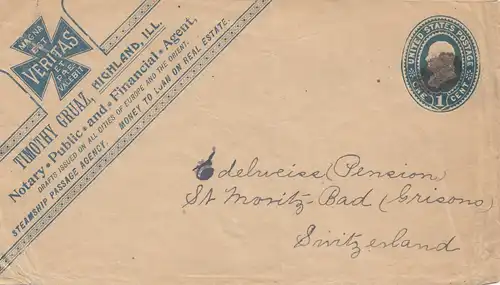 MAGNA
EST
VERITAS
ET
PRE
VALEBIT
TIMOTHY GRUAZ, HIGHLAND, ILL.
Notary Public and Financial Agent,
DRAFTS ISSUED ON ALL CITIES OF EUROPE AND THE ORIENT.
STEAMSHIP PASSAGE AGENCY. MONEY TO LOAN ON REAL ESTATE.
UNITED STATES POSTAGE
ONE 1 CENT
Edelweiss (Pension)
St Moritz-Bad (Grisons)
Switzerland